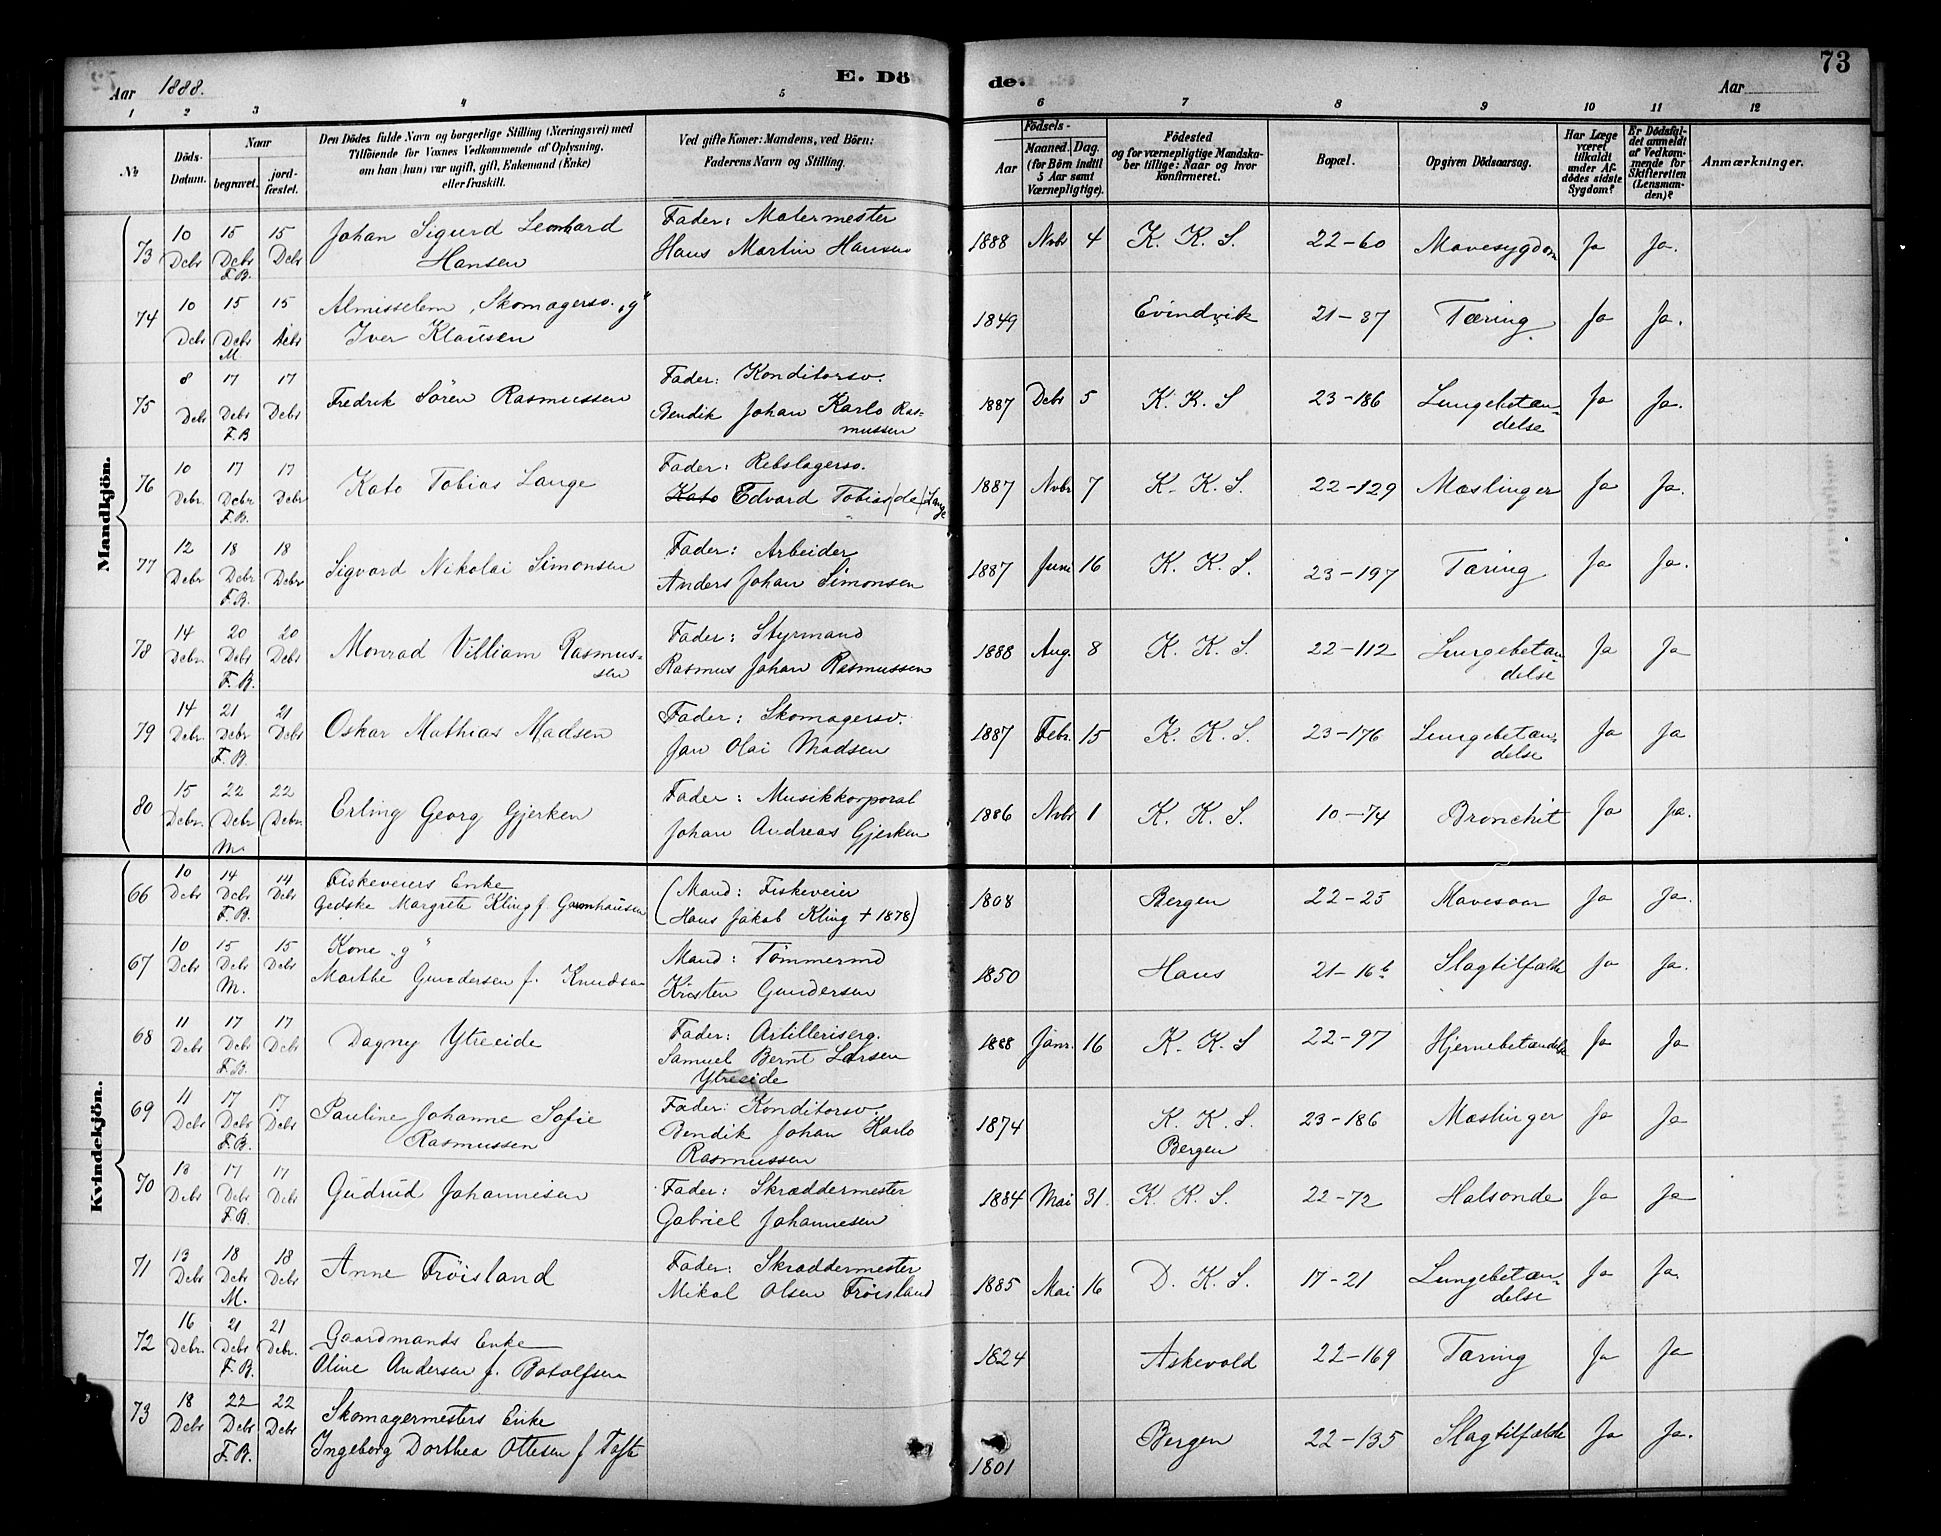 73
Aar 1888.
E. Dö
de.
Aar
1 2 3 4 5 6 7 8 9 10 11 12
№
Döds-
Datum.
Naar
begravet.
jord-
fæstet.
Den Dödes fulde Navn og borgerlige Stilling (Næringsvei) med
Tilföiende for Voxnes Vedkommende af Oplysning,
om han (hun) var ugift, gift, Enkemand (Enke)
eller fraskilt.
Ved gifte Koner: Mandens, ved Börn:
Faderens Navn og Stilling.
Födsels-
Aar
Maaned. Dag.
(for Börn indtil
5 Aar samt
Værnepligtige).
Födested
og for værnepligtige Mandska-
ber tillige: Naar og hvor
konfirmeret.
Bopæl.
Opgiven Dödsaarsag.
Har Læge
været
tilkaldt
under Af-
dödes sidste
Sygdom?
Er Dödsfal-
det anmeldt
af Vedkom-
mende for
Skifteretten
(Lensman-
den)?
Anmærkninger.
Mandkjön.
73 10 Debr 15 Debr F.B. 15 Debr Johan Sigurd Leonhard
Hansen Fader: Malermester
Hans Martin Hansen 1888 Nvbr 4 K. K. S. 22-60 Mavesygdom Ja Ja.
74 10 Debr 15 Debr M. 15 Debr Almisselem, Skomagersv. "g"
Iver Klausen 1849 Evindvik 21-37 Tæring Ja Ja.
75 8 Debr 17 Debr F.B 17 Debr Fredrik Sören Rasmussen Fader: Konditorsv.
Bendik Johan Karlo Ras-
mussen 1887 Debr 5 K. K. S 23-186 Lungebetæn-
delse Ja Ja.
76 10 Debr. 17 Debr F.B. 17 Debr Kato Tobias Lange Fader: Rebslagersv.
Kato Edvard Tobias (de) Lange 1887 Nvbr 7 K. K. S. 22-129 Mæslinger Ja Ja.
77 12 Debr 18 Debr F.B. 18 Debr Sigvard Nikolai Simonsen Fader: Arbeider
Anders Johan Simonsen 1887 Juni 16 K. K. S. 23-197 Tæring Ja Ja.
78 14 Debr. 20 Debr F.B. 20 Debr Monrad Villiam Rasmus-
sen Fader: Styrmand
Rasmus Johan Rasmussen 1888 Aug. 8 K. K. S. 22-112 Lungebetæn-
delse Ja Ja
79 14 Debr. 21 Debr F.B. 21 Debr Oskar Mathias Madsen Fader: Skomagersv.
Jan Olai Madsen 1887 Febr. 15 K. K. S. 23-176 Lungebetæn-
delse Ja Ja
80 15 Debr. 22 Debr M. 22 Debr. Erling Georg Gjerken Fader: Musikkorporal
Johan Andreas Gjerken 1886 Nvbr 1 K. K. S. 10-74 Bronchit Ja Ja.
Kvindekjön.
66 10 Debr 14 Debr F.B. 14 Debr Fiskeveiers Enke
Gedske Margrete Kling f. (Mand: Fiskeveier
Hans Jakob Kling + 1878) 1808 Bergen 22-25 Mavesaar Ja Ja.
67 10 Debr 15 Debr M. 15 Debr Kone "g"
Marthe Gundersen f. Knudsen Mand: Tömmermd
Kristen Gundersen 1850 Haus 21-16b Slagtilfælde Ja Ja.
68 11 Debr 17 Debr F.B. 17 Debr Dagny Ytreeide Fader: Artilleriserg.
Samuel Bernt Larsen
Ytreeide 1888 Janr. 16 K. K. S 22-97 Hjernebetændelse Ja Ja
69 11 Debr 17 Debr F.B. 17 Debr Pauline Johanne Sofie
Rasmussen Fader: Konditorsv.
Bendik Johan Karlo
Rasmussen 1874 K. K. S.
Bergen 23-186 Mæslinger Ja Ja
70 13 Debr 17 Debr F.B. 17 Debr Gudrud Johannisen Fader: Skræddermester
Gabriel Johannesen 1884 Mai 31. K. K. S. 22-72 Halsonde Ja Ja
71 13 Debr 18 Debr M. 18 Debr Anne Fröisland Fader: Skræddermester
Mikal Olsen Fröisland 1885 Mai 16 D. K. S. 17-21 Lungebetæn-
delse Ja Ja.
72 16 Debr. 21 Debr F.B. 21 Debr. Gaardmands Enke
Oline Andersen f. Botolfsen 1824 Askevold 22-169 Tæring Ja Ja
73 18 Debr 22 Debr F.B. 22 Debr Skomagermesters Enke
Ingeborg Dorthea Ottesen f Tofte 1801 Bergen 22-135 Slagtilfælde Ja Ja.